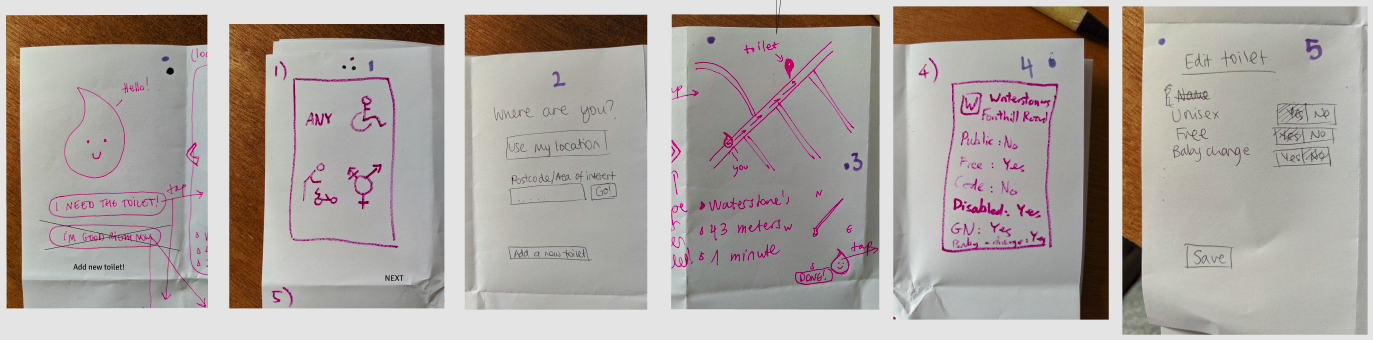 Hello!
I NEED THE TOILET!
tap
I'M GOOD RIGHT NOW
Add new toilet!
1)
1
ANY
NEXT
5)
2
Where are you?
Use my location
Postcode/Area of interest
Go!
Add a new toilet
toilet
you
3
Waterstone's
43 meters
1 minute
N
W
E
S
tap
DONE!
4)
4
W
Waterstones
Fonthill Road
Public: No
Free: Yes
Code: No
Disabled: Yes
GN: Yes
5
Edit toilet
Name
Unisex Yes No
Free Yes No
Baby change Yes No
Save